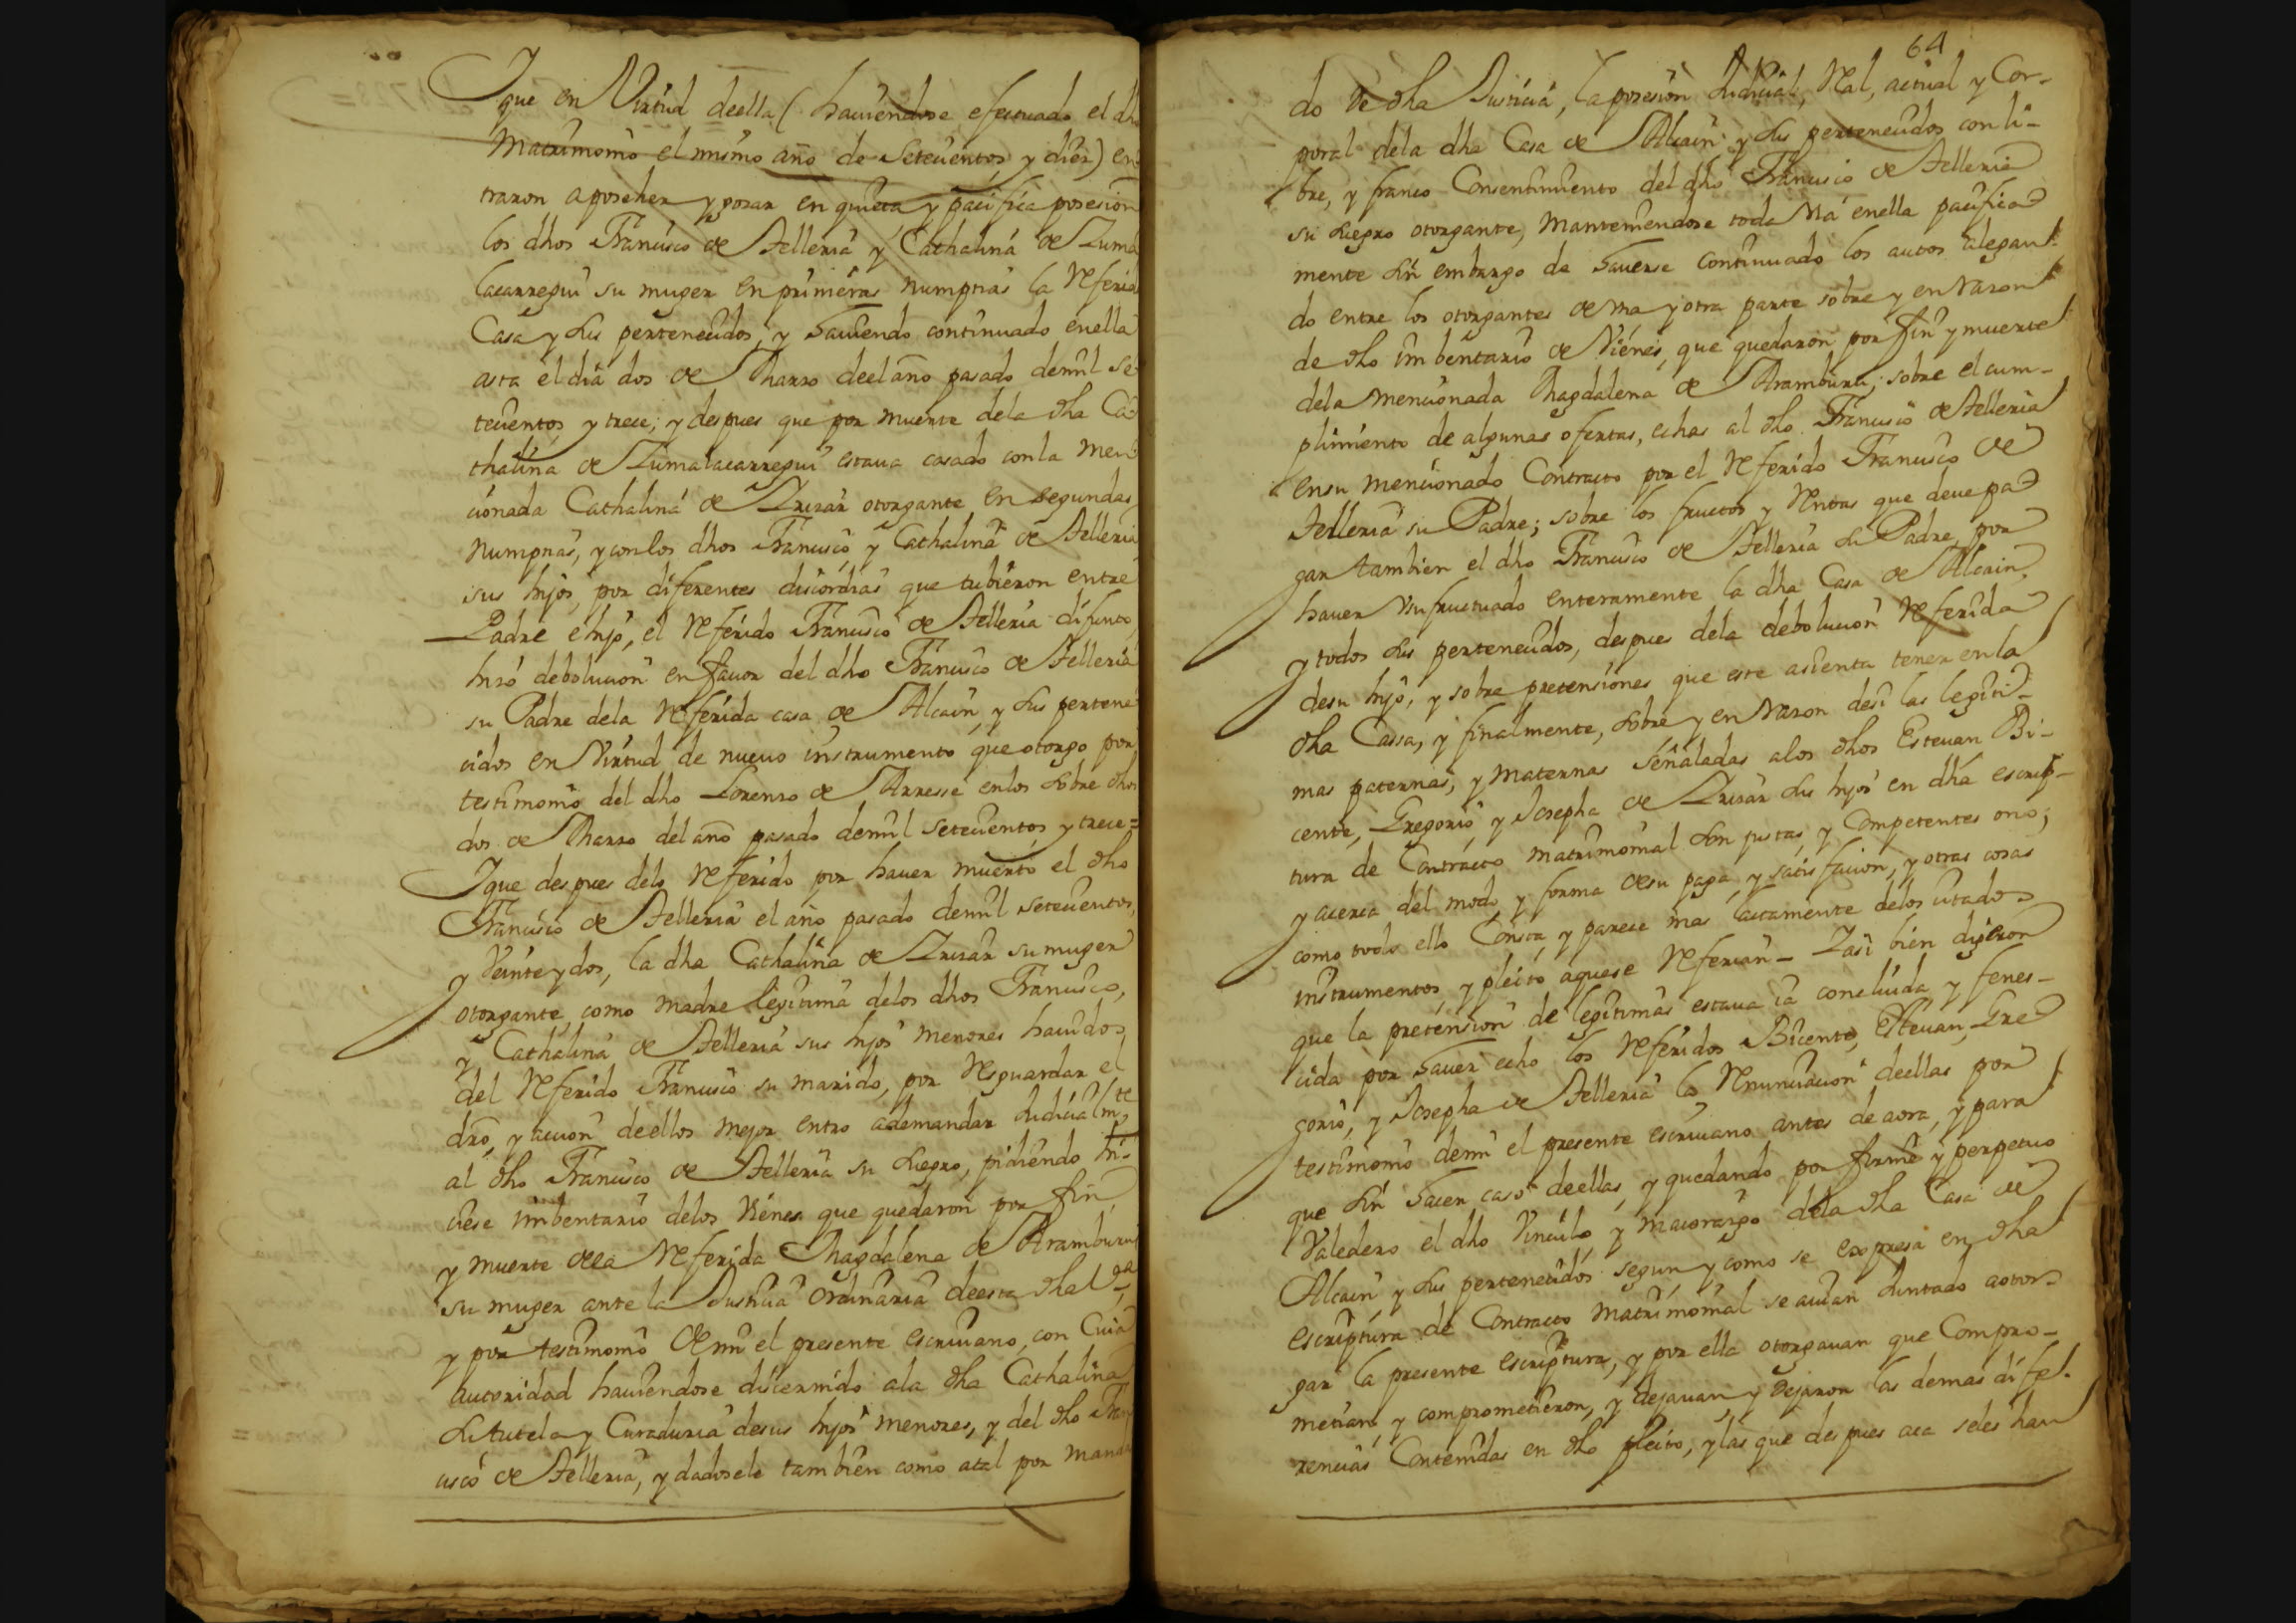 Y que en Virtud deella (haviendose efectuado el dho
Matrimonio el mismo año de Setecientos y diez) en
traron aposeher y gozar en quieta y pacifica posesion
los dhos Francisco de Telleria y Cathalina de Zuma
lacarregui su muger en primeras numpcias la Referida
Casa y sus pertenecidos, y haviendo continuado enella
asta el dia dos de Marzo deel año pasado demil se
tecientos y trece; y despues que por muerte dela dha Ca
thalina de Zumalacarregui estava casado con la men
cionada Cathalina de Irizar otorgante en segundas
numpcias, y con los dhos Francisco y Cathalina de Telleria
sus hijos, por diferentes discordias que tubieron entre
Padre e hijo, el Referido Francisco de Telleria difunto
hizo debolucion en favor del dho Francisco de Telleria
su Padre dela Referida casa de Alcain y sus pertene
cidos en Virtud de nuevo instrumento que otorgo por
testimonio del dho Lorenzo de Arresse enlos sobre dhos
dos de Marzo del año pasado demil setecientos y trece=
Y que despues delo Referido por haver muerto el dho
Francisco de Telleria el año pasado demil setecientos
y Veinte y dos, la dha Cathalina de Irizar su muger
otorgante como madre legitima delos dhos Francisco,
y Cathalina de Telleria sus hijos menores havidos
del Referido Francisco su marido, por Resguardar el
dro, y accion deellos mejor entro ademandar Judicialmte
al dho Francisco de Telleria su suegro, pidiendo hi-
ciese imbentario delos Vienes que quedaron por fin
y muerte dela Referida Magdalena de Aramburu
su muger ante la Justicia ordinaria deesta dha Va
y por testimonio de mi el presente escrivano, con Cuia
autoridad haviendose discernido ala dha Cathalina
la tutela y Curaduria desus hijos menores, y del dho Fran
cisco de Telleria, y dadosele tambien como atal por manda
64
do de dha Justicia, la posesion Judicial, Real, actual y Cor-
poral dela dha Casa de Alcain y sus pertenecidos con li-
bre, y franco Consentimiento del dho Francisco de Telleria
su suegro otorgante, manteniendose toda Via enella pacifica
mente sin embargo de haverse Continuado los autos alegan-
do entre los otorgantes de una y otra parte sobre y en razon
de dho imbentario de Vienes, que quedaron por fin y muerte
dela mencionada Magdalena de Aramburu; sobre el cum-
plimiento de algunas ofertas, echas al dho Francisco de Telleria
en su mencionado Contracto por el Referido Francisco de
Telleria su Padre; sobre los fructos y Rentas que deve pa
gar tambien el dho Francisco de Telleria su Padre por
haver Vsufructuado enteramente la dha Casa de Alcain
y todos sus pertenecidos, despues dela debolucion Referida
desu hijo, y sobre pretensiones que este asienta tener en la
dha Cassa, y finalmente, sobre y en razon desi las legiti-
mas paternas, y maternas señaladas alos dhos Estevan Bi-
cente, Gregorio y Josepha de Irizar sus hijos en dha escrip-
tura de Contracto matrimonial son justas, y Competentes ono;
y acerca del modo y forma desu paga y satisfacion, y otras cosas
como todo ello Consta y parece mas lactamente delos citados
instrumentos y pleito aquese Referian - Y asi bien digeron
que la pretension de legitimas estava ia concluida y fenes-
cida por haver echo los Referidos Bicente, Estevan, Gre
gorio, y Josepha de Telleria la Renunciacion deellas por
testimonio demi el presente escrivano antes de aora, y para
que sin hacer caso deellas, y quedando por firme y perpetuo
Valedero el dho Vinculo y maiorazgo dela dha Casa de
Alcain y sus pertenecidos segun y como se expresa en dha
escriptura de Contracto matrimonial se avian Juntado aotor-
gar la presente escriptura, y por ella otorgavan que Compro-
metian, y comprometieron, y dejavan y dejaron las demas dife-
rencias Contenidas en dho pleito, y las que despues aca seles han